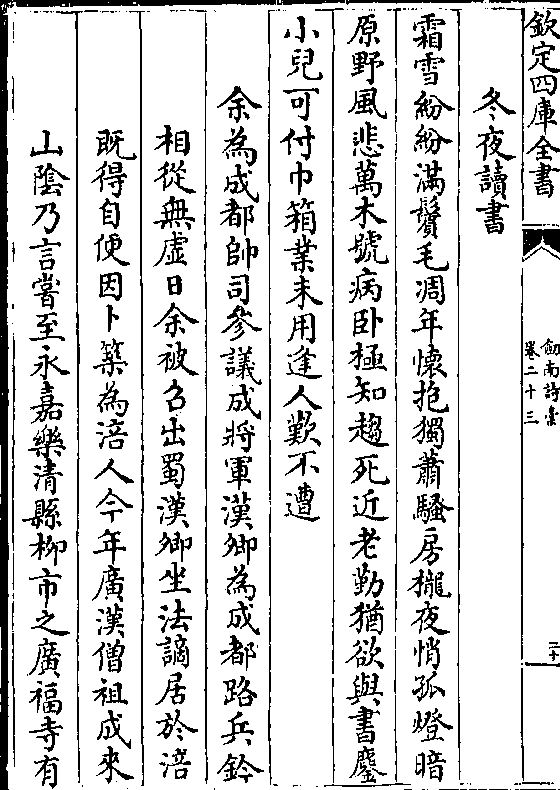 欽定四庫全書
劒南詩藁
卷二十三
二十
冬夜讀書
霜雪紛紛滿鬢毛凋年懷抱獨蕭騷房櫳夜悄孤燈暗
原野風悲萬木號病卧極知趨死近老勤猶欲與書鏖
小兒可付巾箱業未用逢人歎不遭
余為成都帥司參議成將軍漢卿為成都路兵鈐
相從無虚日余被召出蜀漢卿坐法謫居於涪
既得自便因卜築為涪人今年廣漢僧祖成來
山隂乃言嘗至永嘉樂清縣柳市之廣福寺有